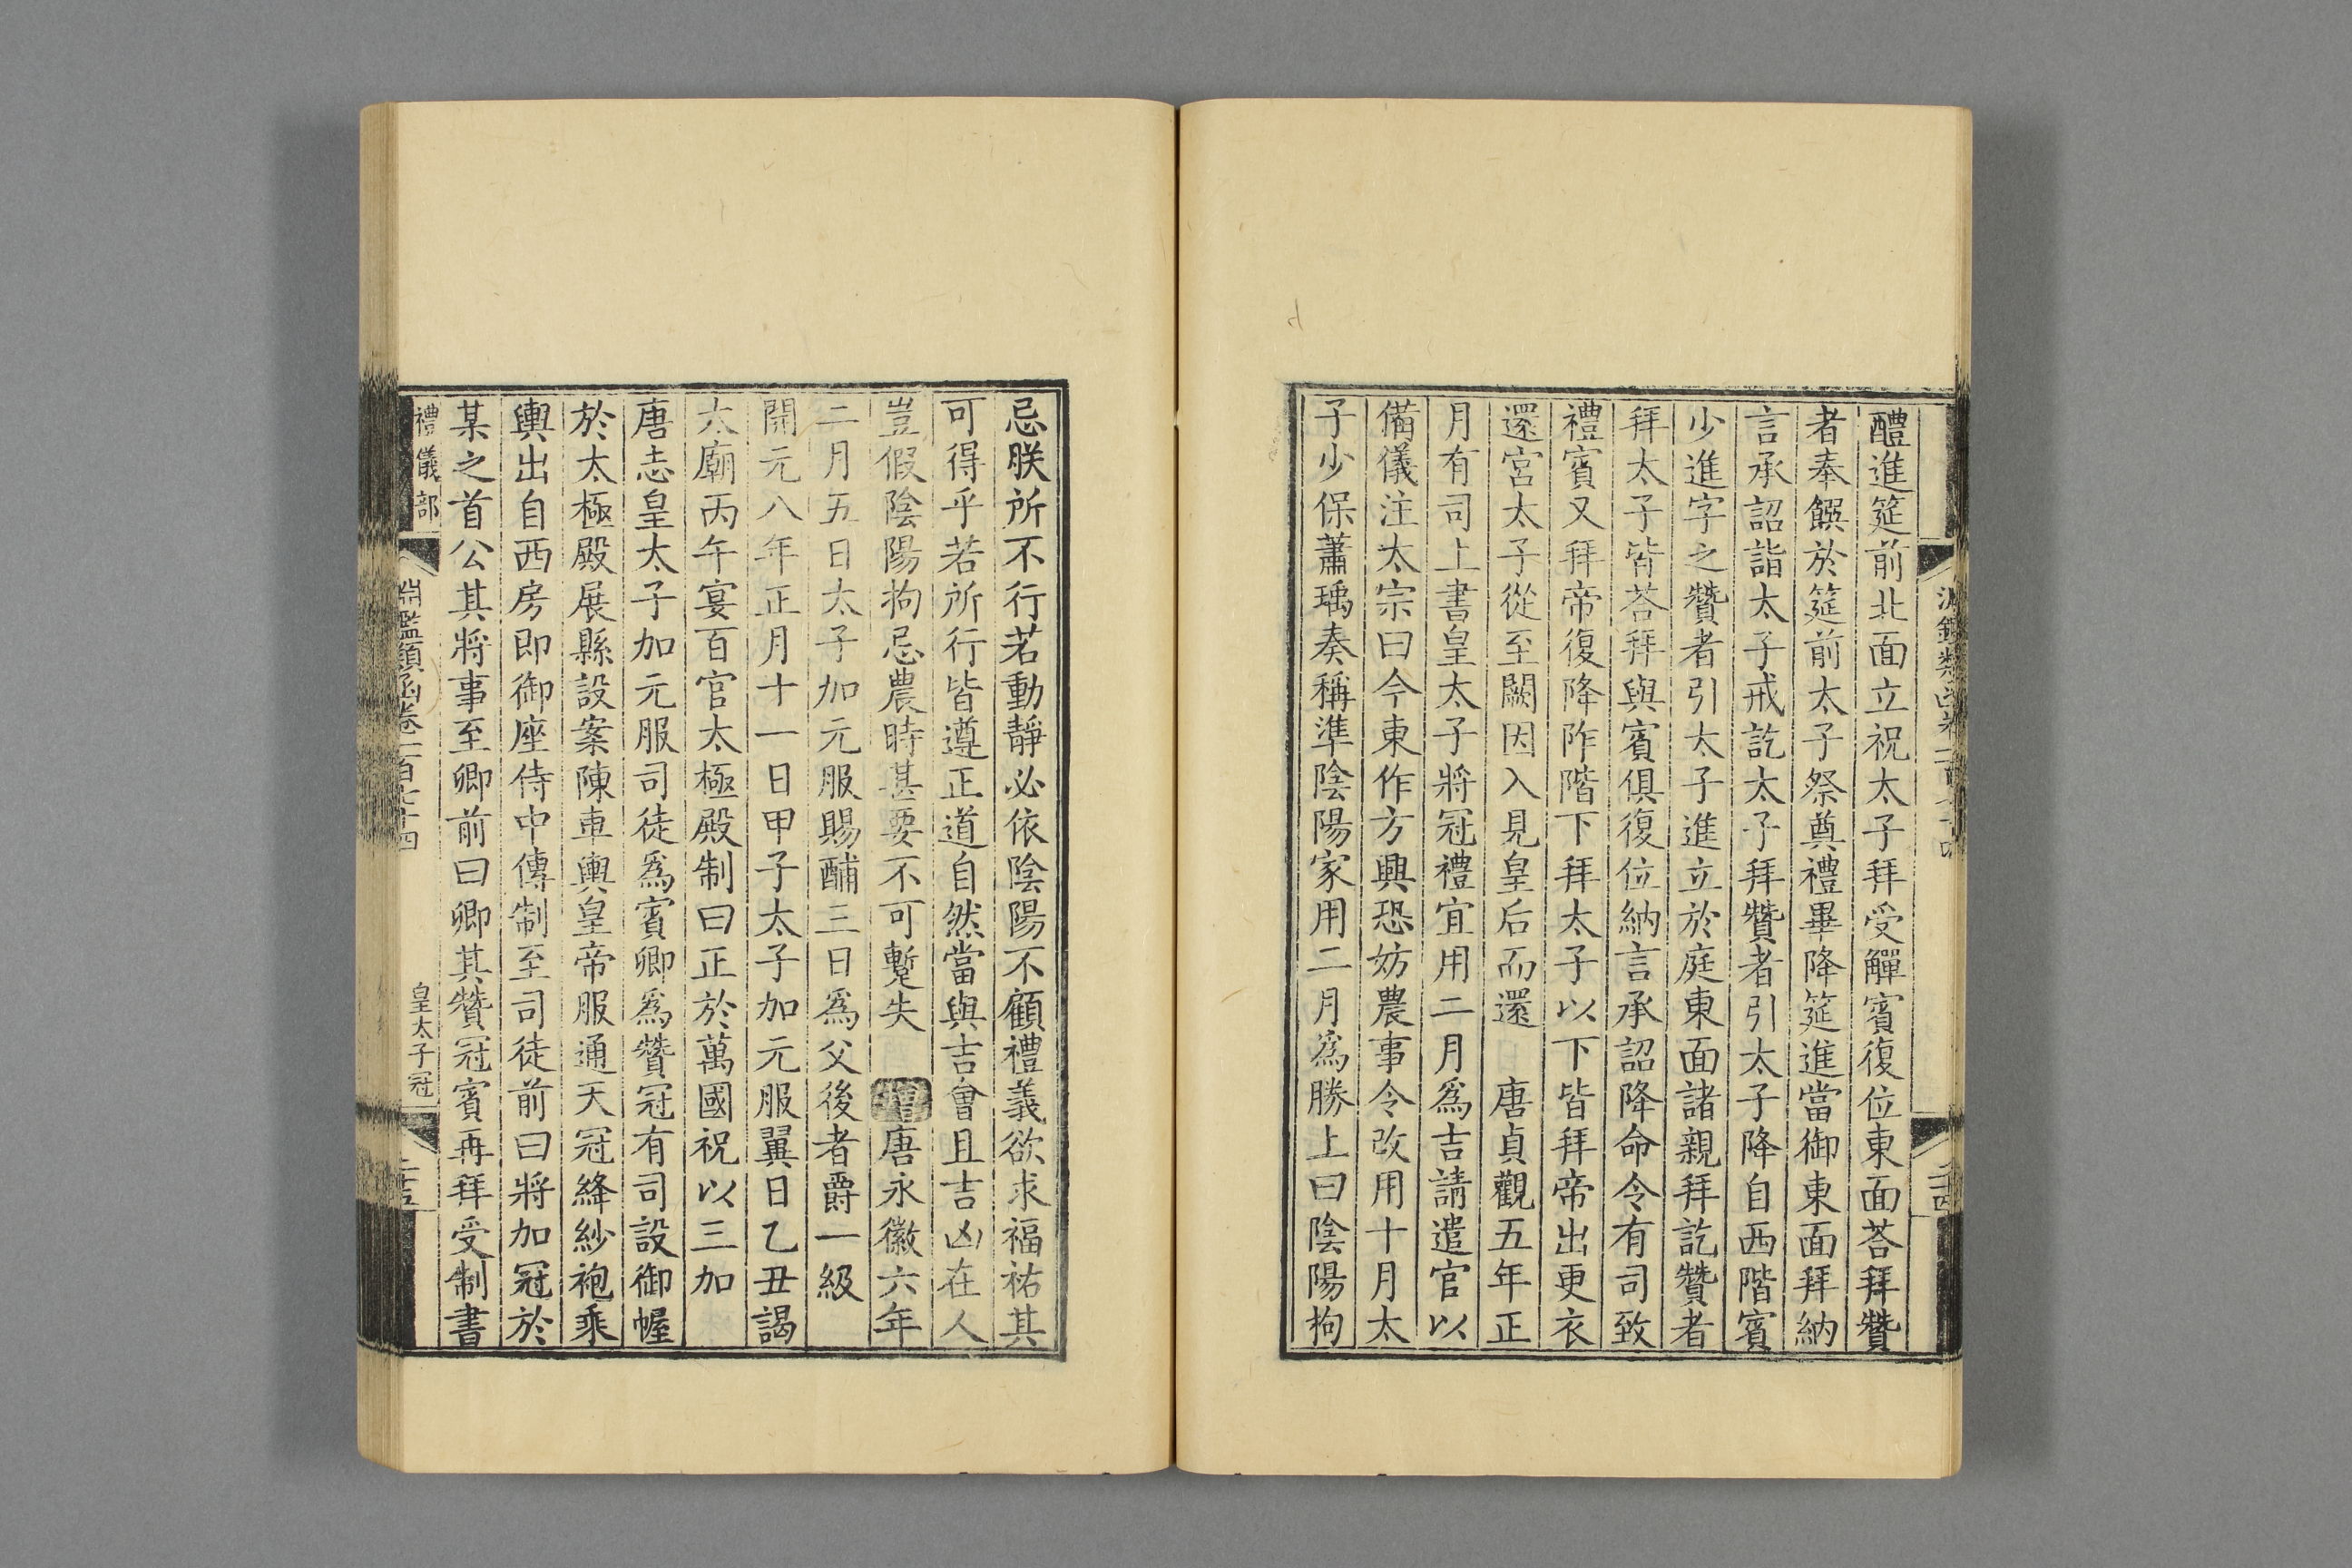 醴進筵前北面立祝太子拜受觶賓復位東面荅拜贊
者奉饌於筵前太子祭奠禮畢降筵進當御東面拜納
言承詔詣太子戒訖太子拜贊者引太子降自西階賓
少進字之贊者引太子進立於庭東面諸親拜訖贊者
拜太子皆荅拜與賓俱復位納言承詔降命令有司致
禮賓又拜帝復降阼階下拜太子以下皆拜帝出更衣
還宮太子從至闕因入見皇后而還 唐貞觀五年正
月有司上書皇太子將冠禮宜用二月爲吉請遣官以
備儀注太宗曰今東作方興恐妨農事令改用十月太
子少保蕭瑀奏稱準陰陽家用二月爲勝上曰陰陽拘
忌朕所不行若動靜必依陰陽不顧禮義欲求福祐其
可得乎若所行皆遵正道自然當與吉會且吉凶在人
豈假陰陽拘忌農時甚要不可蹔失 增唐永徽六年
二月五日太子加元服賜酺三日爲父後者爵一級
開元八年正月十一日甲子太子加元服翼日乙丑謁
太廟丙午宴百官太極殿制曰正於萬國祝以三加
唐志皇太子加元服司徒爲賓卿爲贊冠有司設御幄
於太極殿展縣設案陳車輿皇帝服通天冠絳紗袍乘
輿出自西房即御座侍中傳制至司徒前曰將加冠於
某之首公其將事至卿前曰卿其贊冠賓再拜受制書
禮儀部
淵鑑類函卷二百七十四
皇太子冠
二十五